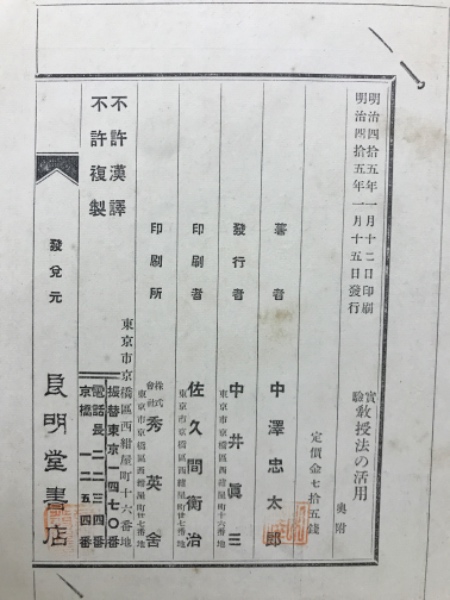 明治四拾五年一月十二日印刷
明治四拾五年一月十五日發行
實驗教授法の活用
奥附
定價金七拾五錢
著者 中澤忠太郎
發行者 中井眞三
東京市京橋區西紺屋町十六番地
印刷者 佐久間衡治
東京市京橋區西紺屋町廿七番地
印刷所 株式會社 秀英舍
東京市京橋區西紺屋町廿七番地
不許漢譯
不許複製
發兌元
東京市京橋區西紺屋町十六番地
良明堂書店
振替東京一四七〇番
電話長二二三四番
京橋一二五四番